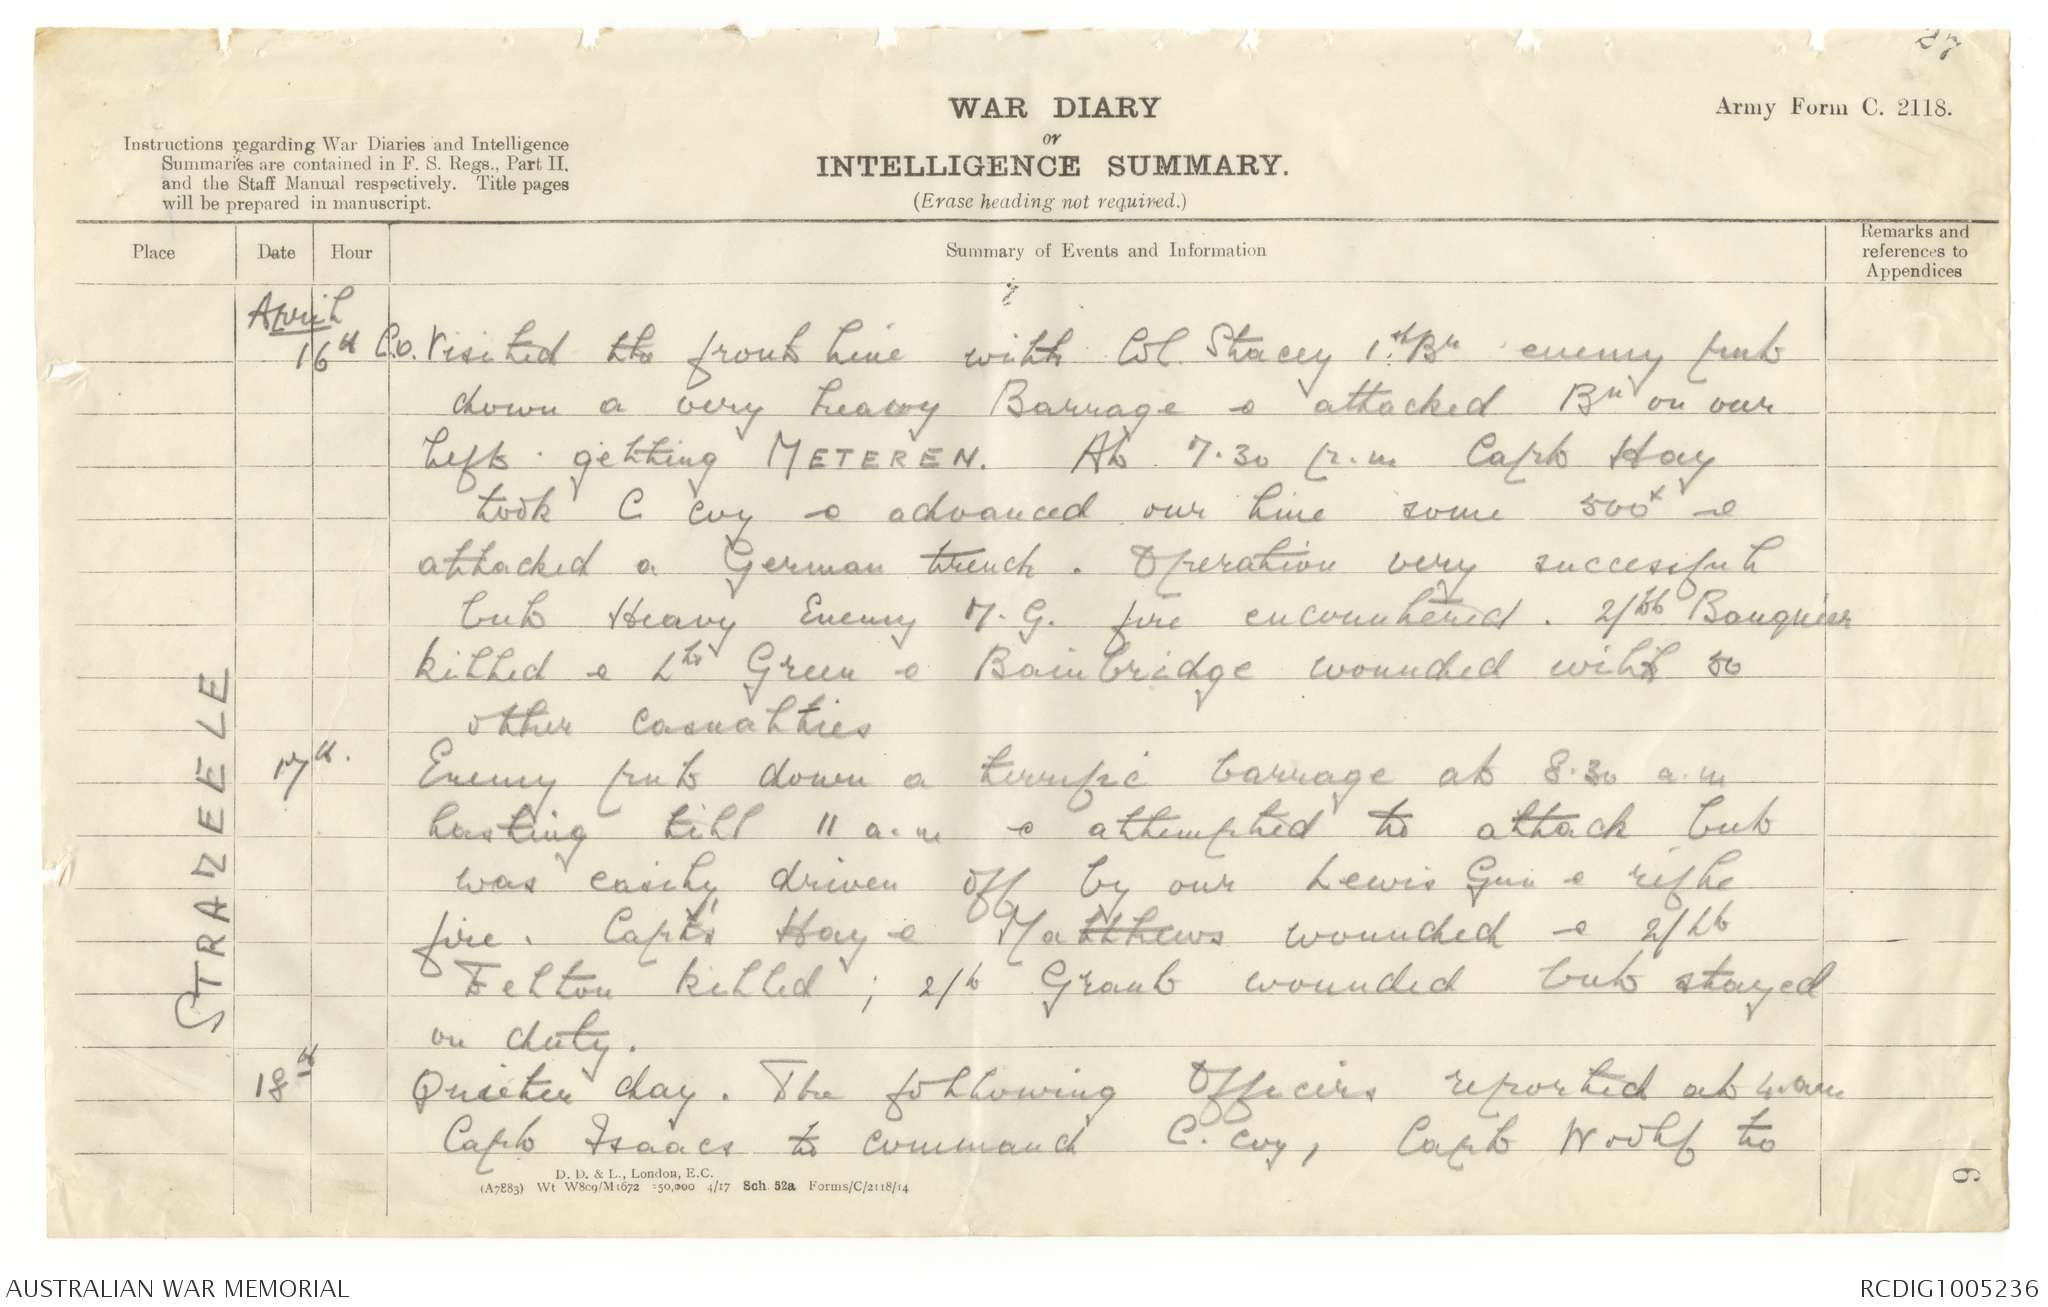 27
WAR DIARY
or
INTELLIGENCE SUMMARY.
(Erase heading not required.)
Army Form C. 2118.
Instructions regarding War Diaries and Intelligence
Summaries are contained in F. S. Regs., Part II.
and the Staff Manual respectively. Title pages
will be prepared in manuscript.
Place
Date
Hour
Summary of Events and Information
Remarks and
references to
Appendices
STRAZEELE
April
16th C.O. Visited the front line with Col. Stacey 1st Bn enemy put
down a very heavy Barrage & attacked Bn on our
left. getting METEREN. At 7.30 p.m Capt Hay
took C coy & advanced our line some 500x &
attacked a German trench. Operation very successful
but Heavy Enemy M.G. fire encountered. 2/Lt Bouquier
killed & Lts Green & Bainbridge wounded with 50
other casualties
17th. Enemy put down a terrific barrage at 8.30 a.m
lasting till 11 a.m & attempted to attack but
was easily driven off by our Lewis Gun & rifle
fire. Capt's Hay & Matthews wounded & 2/Lt
Felton killed; 2/Lt Grant wounded but stayed
on duty.
18th Quieter day. The following Officers reported at
Capt Isaacs to command C. coy, Capt Woolf to
D. D. & L., London, E.C.
(A7883) Wt W809/M1672 350,000 4/17 Sch. 52a Forms/C/2118/14
6
AUSTRALIAN WAR MEMORIAL
RCDIG1005236